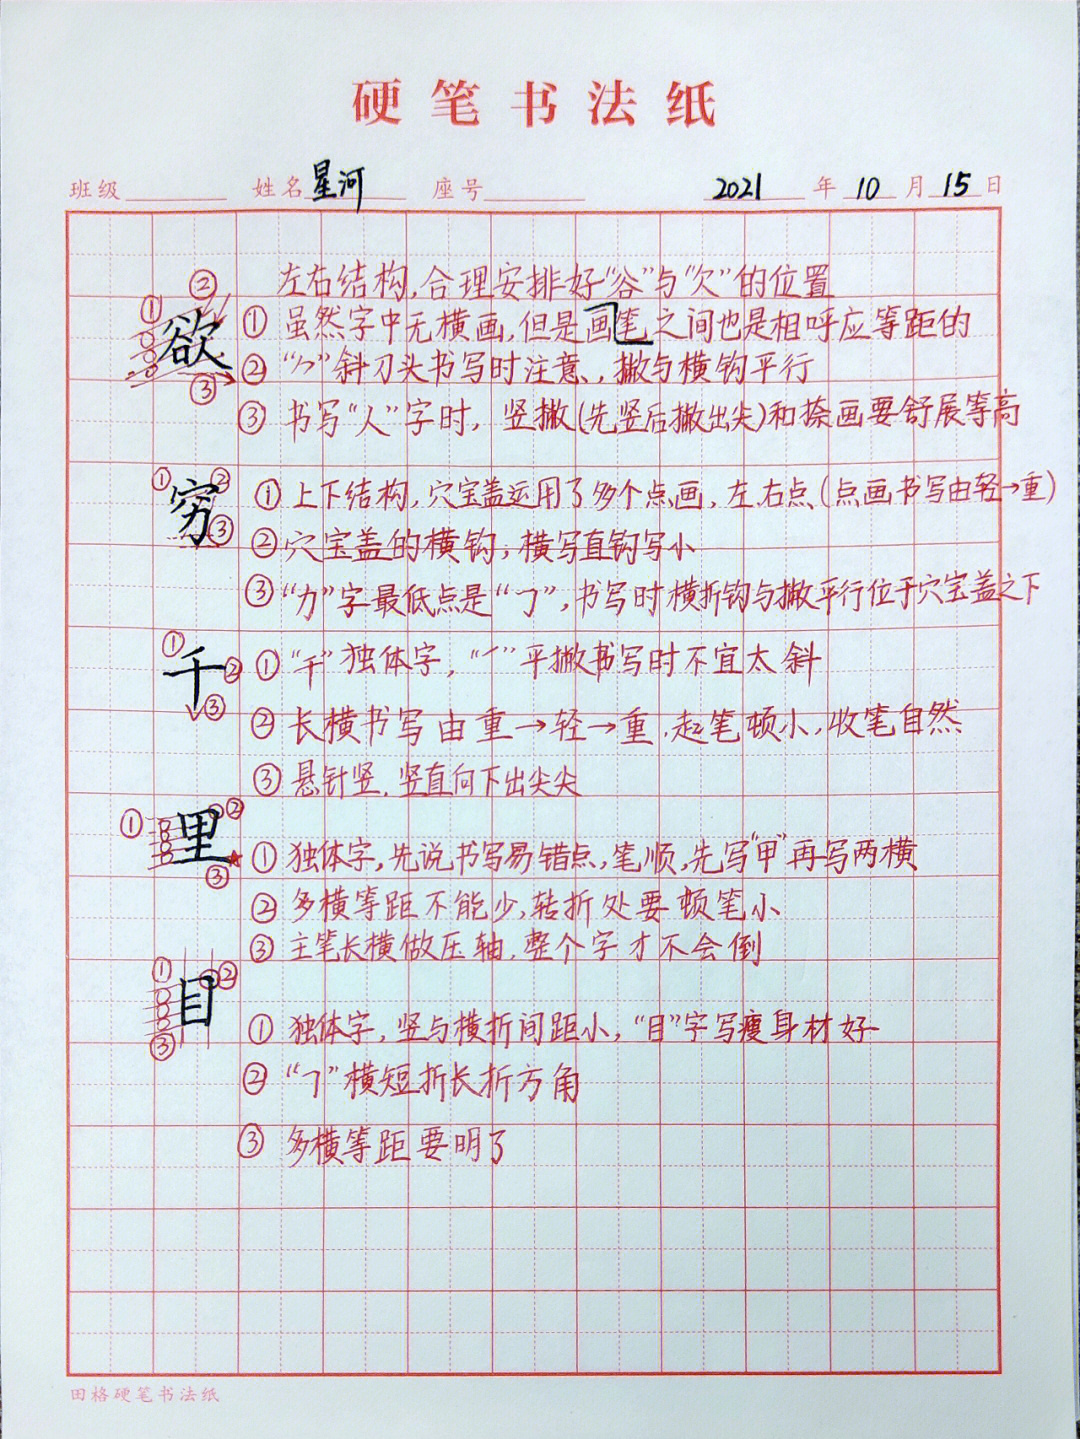 硬笔书法纸
班级 姓名 星河 座号 2021 年 10 月 15 日
左右结构,合理安排好“谷”与“欠”的位置
欲
① ② ③
①虽然字中无横画,但是画笔之间也是相呼应等距的
②“⺈”斜刀头书写时注意,撇与横钩平行
③书写“人”字时,竖撇(先竖后撇出尖)和捺画要舒展等高
穷
① ② ③
①上下结构,穴宝盖运用了多个点画,左右点(点画书写由轻→重)
②穴宝盖的横钩,横写直钩写小
③“力”字最低点是“㇆”,书写时横折钩与撇平行位于穴宝盖之下
千
① ② ③
①“千”独体字,“㇀”平撇书写时不宜太斜
②长横书写由重→轻→重,起笔顿小,收笔自然
③悬针竖,竖直向下出尖尖
里
① ② ③
①独体字,先说书写易错点,笔顺,先写“甲”再写两横
②多横等距不能少,转折处要顿笔小
③主笔长横做压轴,整个字才不会倒
目
① ② ③
①独体字,竖与横折间距小,“目”字写瘦身材好
②“㇆”横短折长折方角
③多横等距要明了
田格硬笔书法纸